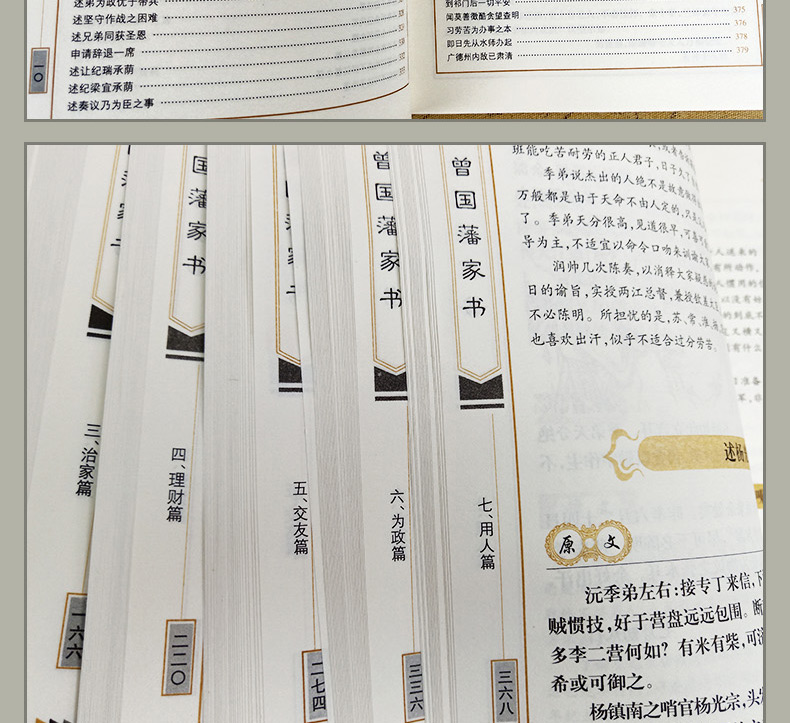 述弟为政优于带兵
述坚守作战之困难
述兄弟同获圣恩
申请辞退一席
述让纪瑞承荫
述纪梁宜承荫
述奏议乃为臣之事
一〇
到祁门后一切平安
闻莫善徵酷贪望查明 375
习劳苦为办事之本 376
即日先从水师办起 378
广德州内敌已肃清 379
三、治家篇
一六六
四、理财篇
二二〇
五、交友篇
二七四
曾国藩家书
六、为政篇
三三六
曾国藩家书
七、用人篇
三六八
班能吃苦耐劳的正人君子，日子久了
季弟说杰出的人绝不是故意做
万般都是由于天命不由人定的，只
了。季弟天分很高，见道很早，可喜可
导为主，不适宜以命令口吻来训谕大家
润帅几次陈奏，以消释大家疑
日的谕旨，实授两江总督，兼授钦差大
不必陈明。所担忧的是，苏、常、淮、扬
也喜欢出汗，似乎不适合过分劳苦。
述杨
原文
沅季弟左右：接专丁来信，下
贼惯技，好于营盘远远包围。断
多李二营何如？有米有柴，可
希或可御之。
杨镇南之哨官杨光宗，头发